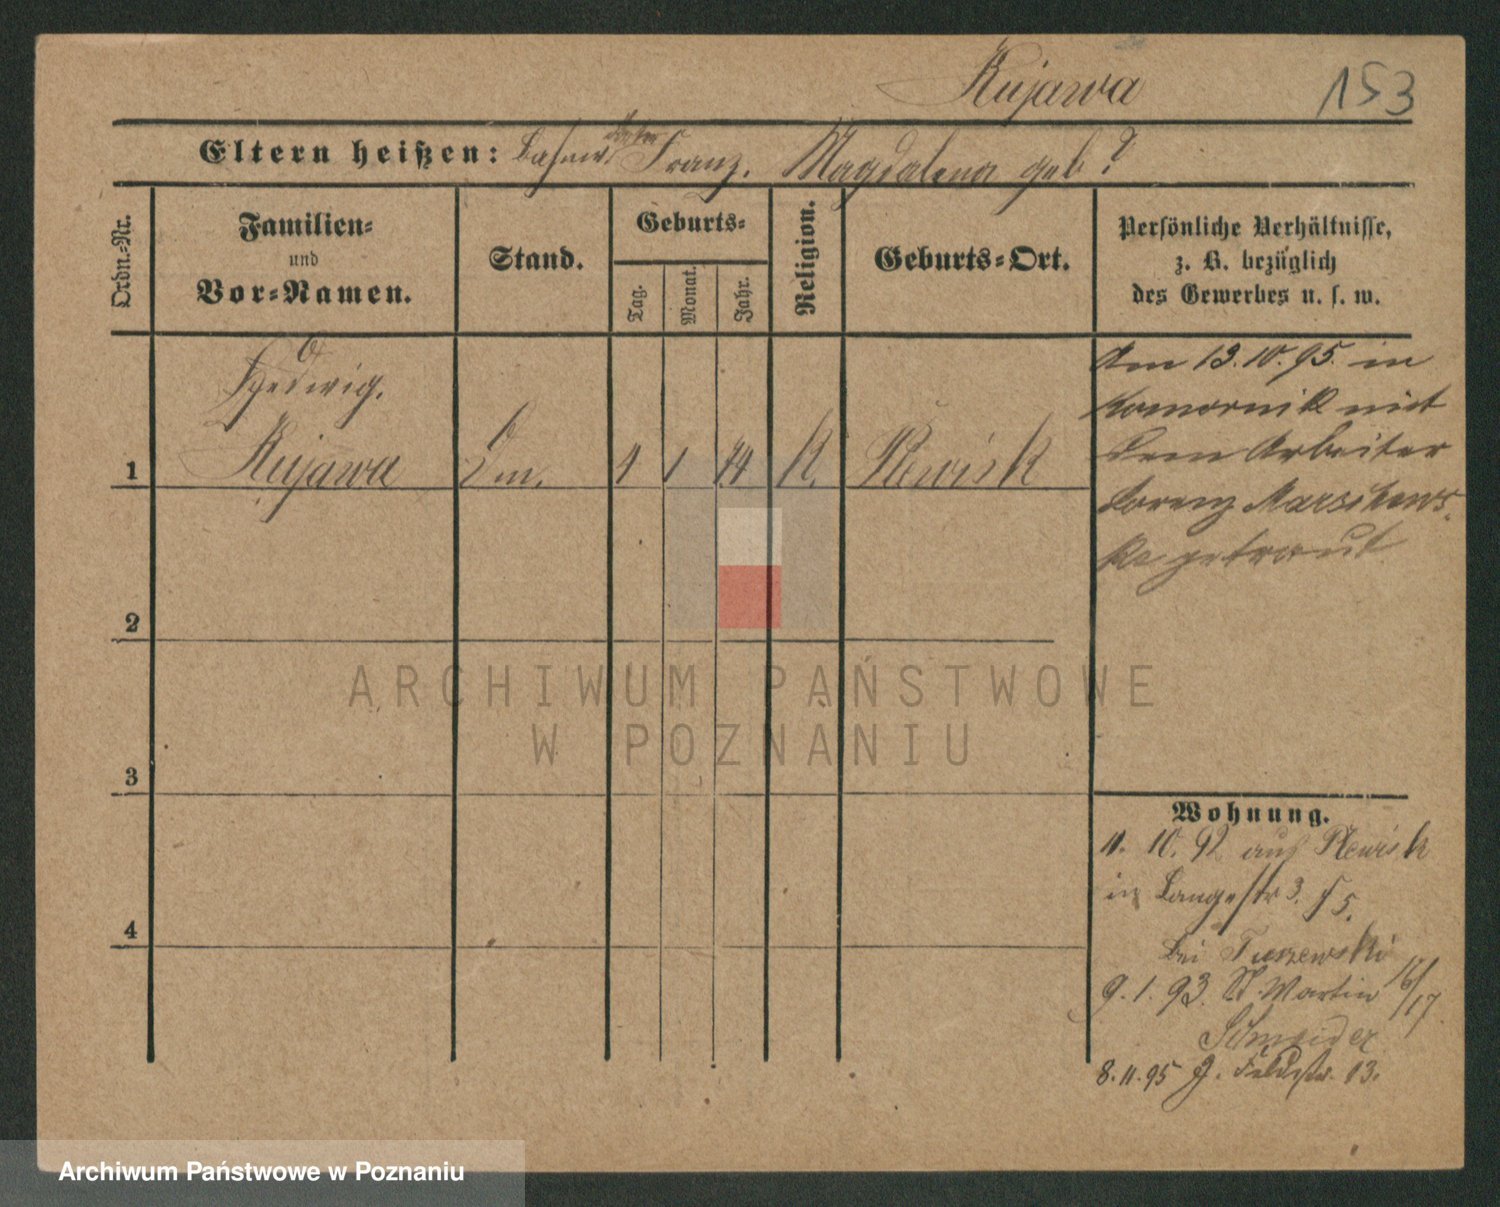 Kujawa 153
Eltern heißen: Franz. Magdalena geb ?
Ordn.-Nr.
Familien-
und
Vor-Namen.
Stand.
Geburts-
Tag.
Monat.
Jahr.
Religion.
Geburts-Ort.
Persönliche Verhältnisse,
z. B. bezüglich
des Gewerbes u. s. w.
Hedwig.
1 Kujawa 1 74 K. Plewisk
Am 13.10.95. in
Komornik mit
dem Arbeiter
Lorenz
getraut
2
ARCHIWUM PAŃSTWOWE
W POZNANIU
3
Wohnung.
11. 10. 92 aus Plewisk
in Langestr 3.
4
bei
9. 1. 93. St. Martin 16/17
Schneider
8.11.95 13.
Archiwum Państwowe w Poznaniu